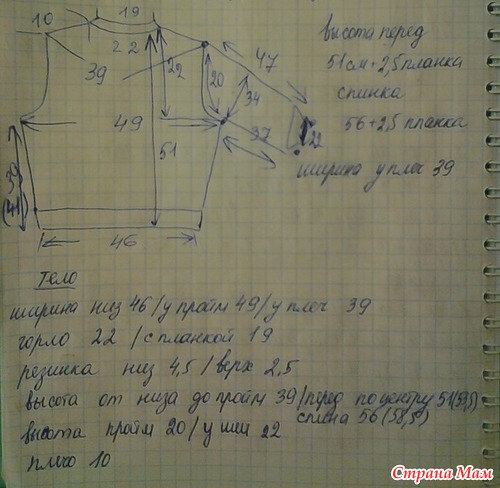 10
19
22
39
22
20
47
34
49
37
22
51
39
(41)
46
высота перед
51 см + 2,5 планка
спинка
56 + 2,5 планка
ширина у плеч 39
Тело
ширина низ 46/у пройм 49/у плеч 39
горло 22 /с планкой 19
резинка низ 4,5/верх 2,5
высота от низа до пройм 39/перед по центру 51(53,5)
спина 56(58,5)
высота пройм 20/у шеи 22
плечо 10
Страна Мам